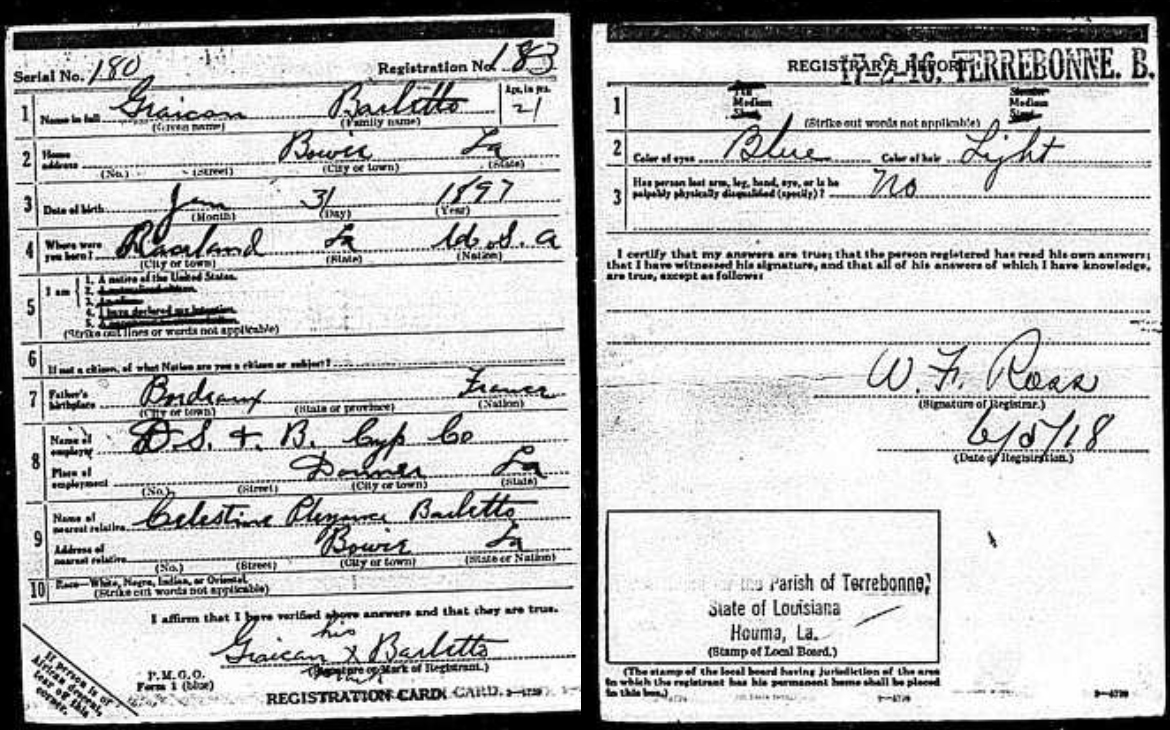 Serial No. 180 Registration No. 183
1 Name in full Graican Barletto Age, in yrs. 21
(Given name) (Family name)
2 Home address Bowie La
(No.) (Street) (City or town) (State)
3 Date of birth Jan 31 1897
(Month) (Day) (Year)
4 Where were you born? Raceland La U. S. A
(City or town) (State) (Nation)
5 I am 1. A native of the United States.
2. A naturalized citizen.
3. An alien.
4. I have declared my intention.
5.
(Strike out lines or words not applicable)
6 If not a citizen, of what Nation are you a citizen or subject?
7 Father's birthplace Bordeaux France
(City or town) (State or province) (Nation)
8 Name of employer D. S. & B. Cyp Co
Place of employment Donner La
(No.) (Street) (City or town) (State)
9 Name of nearest relative Celestine Barletto
Address of nearest relative Bowie La
(No.) (Street) (City or town) (State or Nation)
10 Race—White, Negro, Indian, or Oriental
(Strike out words not applicable)
I affirm that I have verified above answers and that they are true.
his
Graican X Barletto
(Signature or Mark of Registrant.)
P. M. G. O.
Form 1 (blue)
REGISTRATION CARD. CARD.
If person is of African descent, tear off this corner.
REGISTRAR'S REPORT
17-2-16. TERREBONNE. B.
1 Tall Slender
Medium Medium
Short Stout
(Strike out words not applicable)
2 Color of eyes Blue Color of hair Light
3 Has person lost arm, leg, hand, eye, or is he palpably physically disqualified (specify)? No
I certify that my answers are true; that the person registered has read his own answers;
that I have witnessed his signature, and that all of his answers of which I have knowledge,
are true, except as follows:
W. F. Ross
(Signature of Registrar.)
6/5/18
(Date of Registration.)
for the Parish of Terrebonne,
State of Louisiana
Houma, La.
(Stamp of Local Board.)
(The stamp of the local board having jurisdiction of the area
in which the registrant has his permanent home shall be placed
in this box.)